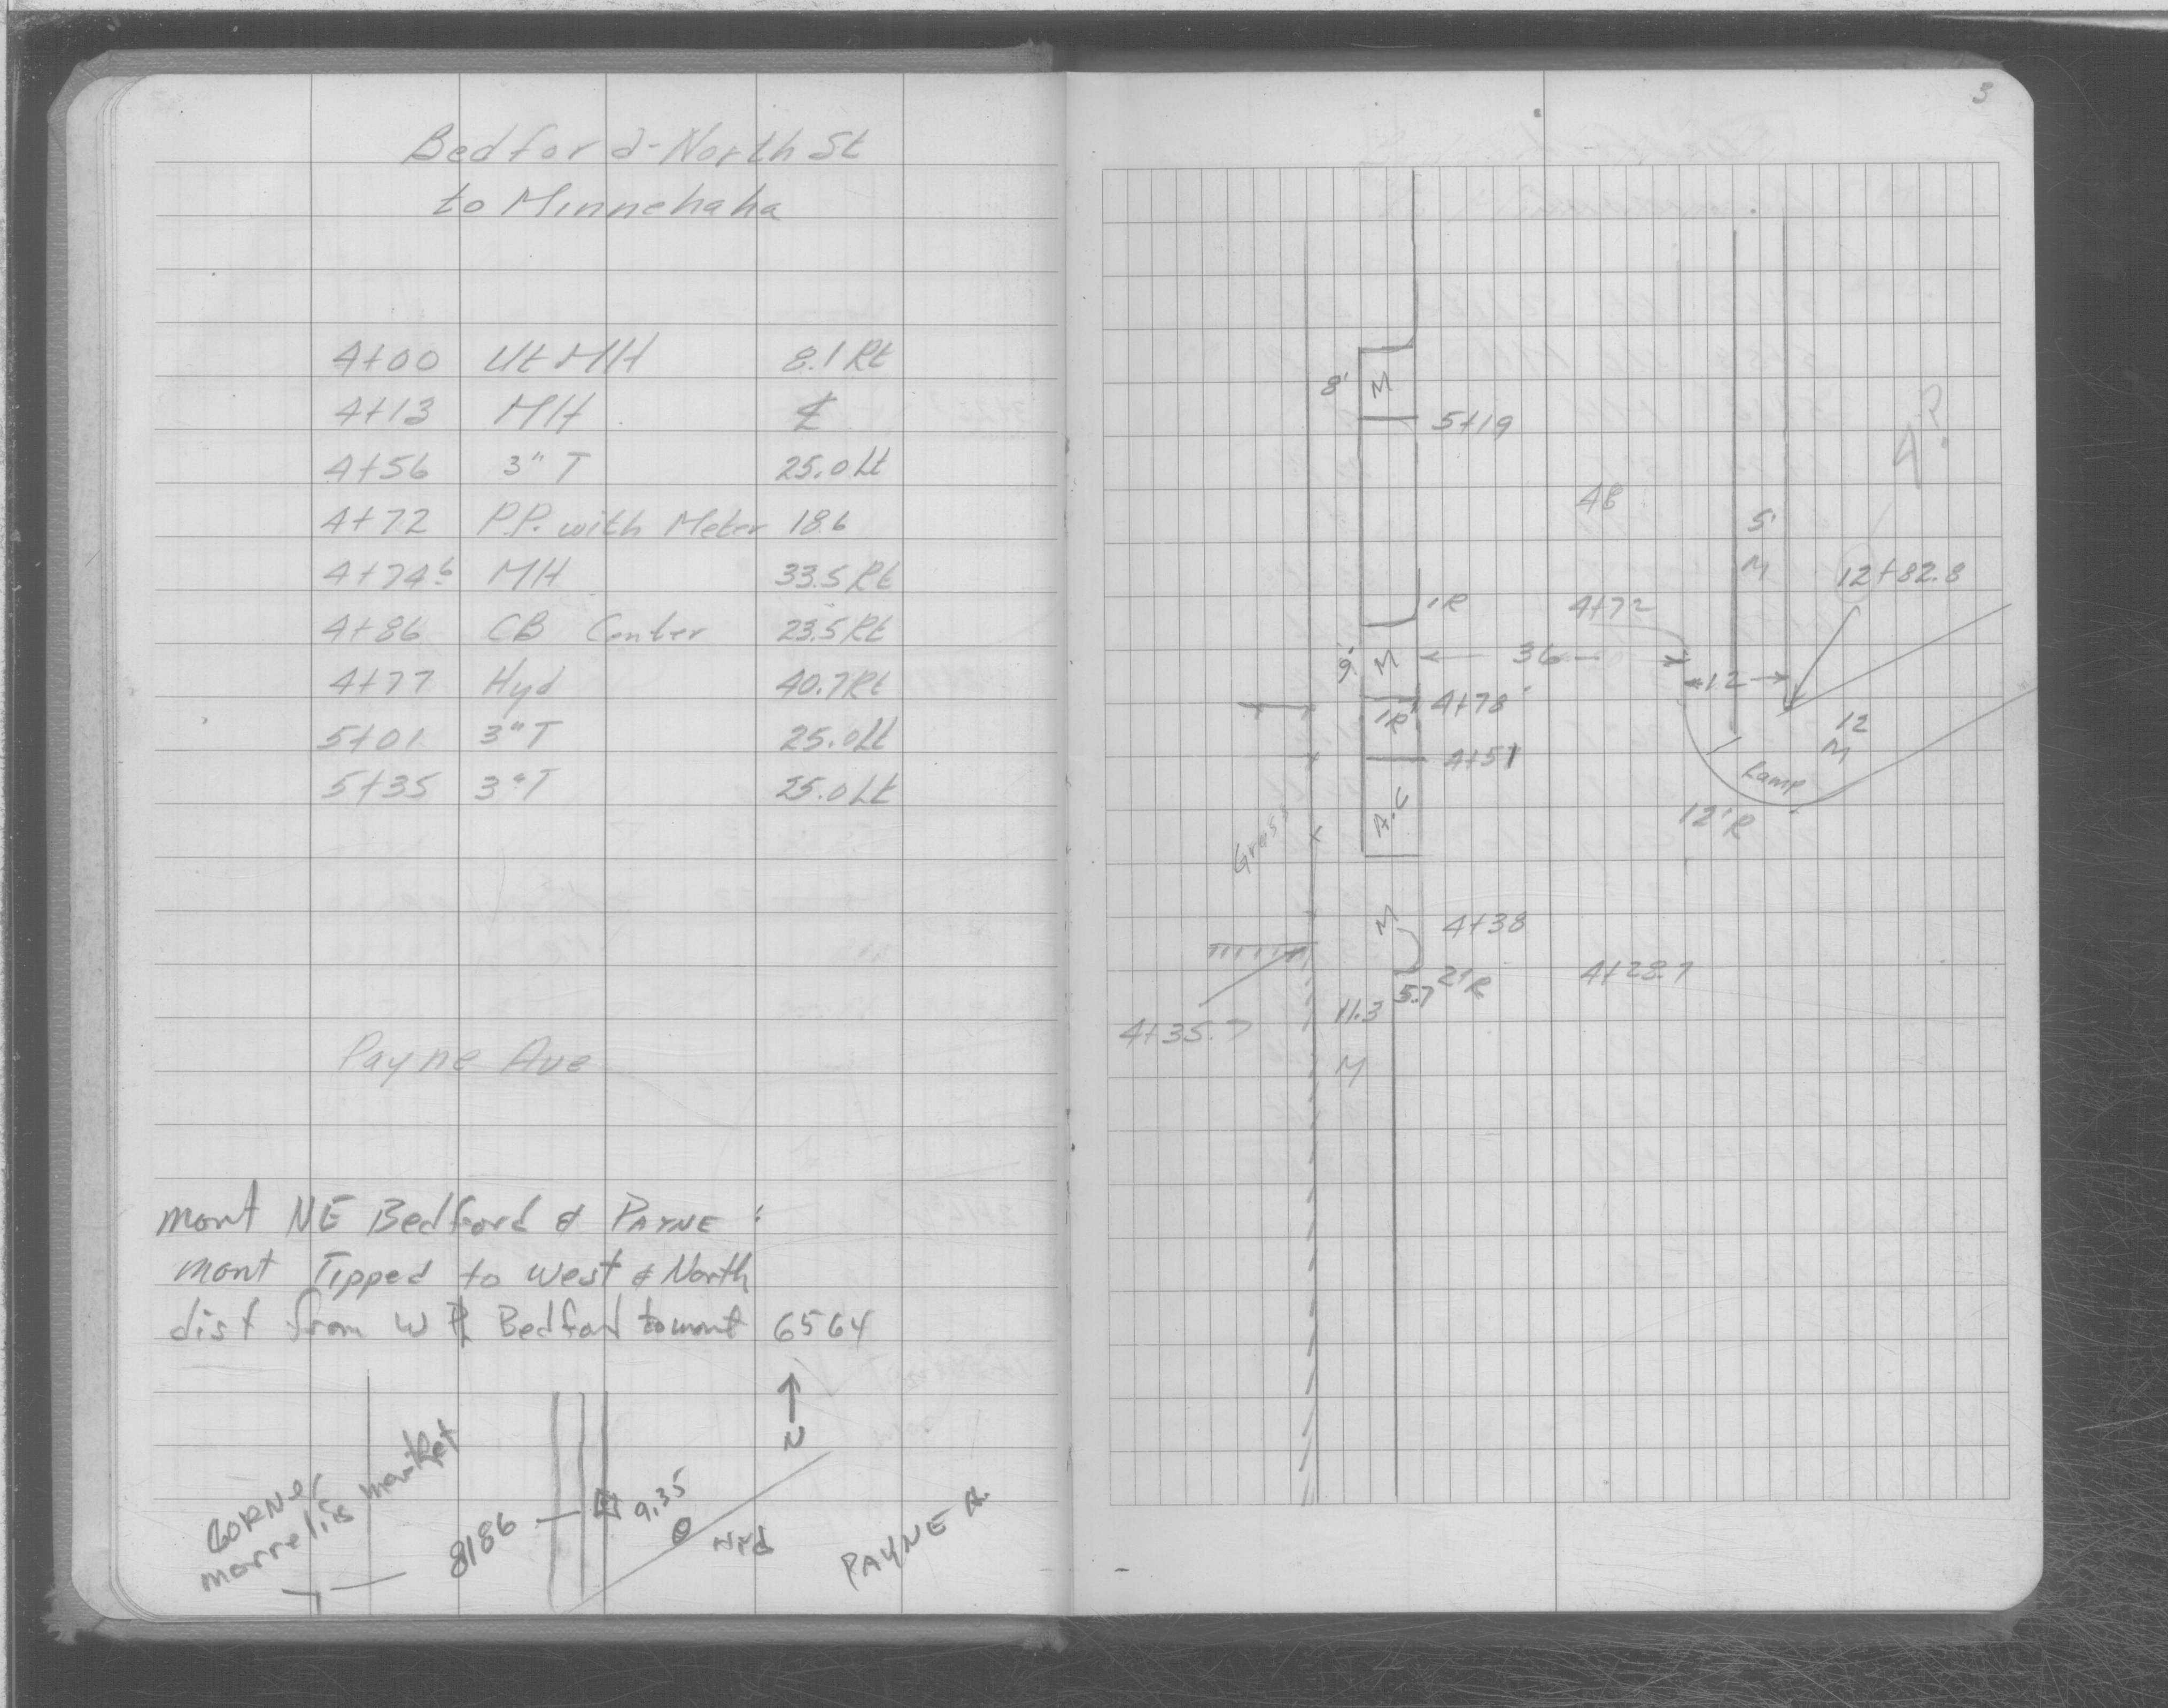 Bedford-North St
to Minnehaha
4+00 Ut MH 8.1 Rt
4+13 MH ℄
4+56 3" T 25.0 Lt
4+72 P.P. with Meter 18.6
4+74.6 MH 33.5 Rt
4+86 CB Center 23.5 Rt
4+77 Hyd 40.7 Rt
5+01 3" T 25.0 Lt
5+35 3" T 25.0 Lt
Payne Ave
mont NE Bedford & PAYNE :
mont Tipped to West & North
dist from W PL Bedford to mont 6564
N
CORNER
morrelis market
8186
9.35
Hyd
PAYNE A.
3
8' M
5+19
4 ?
48
5'
M
12+82.8
1'R
4+72
9' M
36
12
4+78
1'R
12
M
4+51
Ramp
12'R
A.C
Grass
M
4+38
2'R
4+28.7
5.7
11.3
4+35.7
M